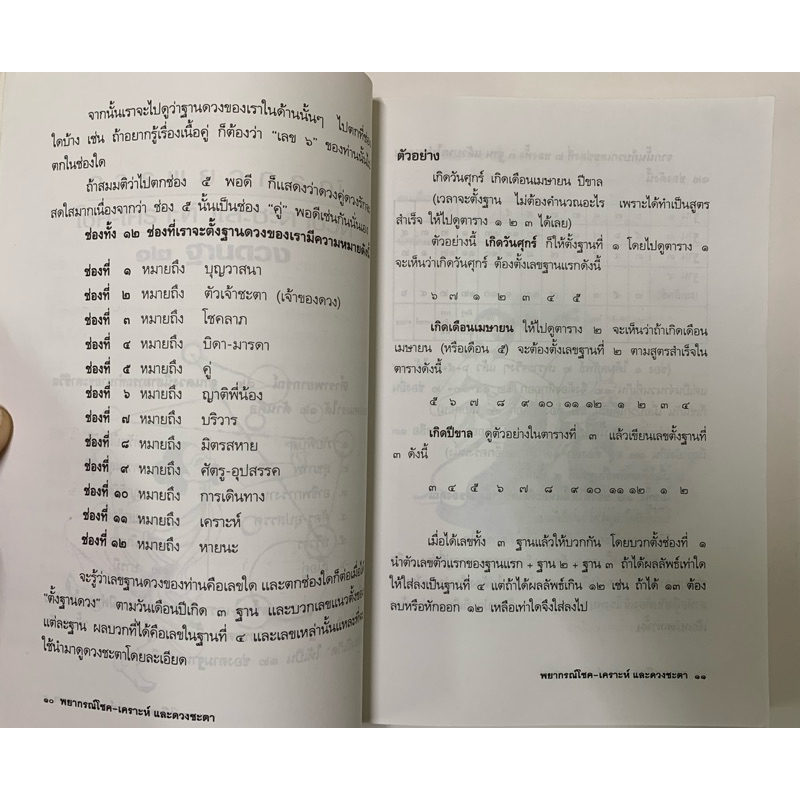 จากนั้นเราจะไปดูว่าฐานดวงของเราในด้านนั้นๆ ไปตกที่ช่อง
ใดบ้าง เช่น ถ้าอยากรู้เรื่องเนื้อคู่ ก็ต้องว่า “เลข ๖” ของท่านนั้น
ตกในช่องใด
ถ้าสมมติว่าไปตกช่อง ๕ พอดี ก็แสดงว่าดวงคู่ดวงรัก
สดใสมากเนื่องจากว่า ช่อง ๕ นั้นเป็นช่อง “คู่” พอดีเช่นกันนั่นเอง
ช่องทั้ง ๑๒ ช่องที่เราจะตั้งฐานดวงของเรามีความหมายดังนี้
ช่องที่ ๑ หมายถึง บุญวาสนา
ช่องที่ ๒ หมายถึง ตัวเจ้าชะตา (เจ้าของดวง)
ช่องที่ ๓ หมายถึง โชคลาภ
ช่องที่ ๔ หมายถึง บิดา-มารดา
ช่องที่ ๕ หมายถึง คู่
ช่องที่ ๖ หมายถึง ญาติพี่น้อง
ช่องที่ ๗ หมายถึง บริวาร
ช่องที่ ๘ หมายถึง มิตรสหาย
ช่องที่ ๙ หมายถึง ศัตรู-อุปสรรค
ช่องที่ ๑๐ หมายถึง การเดินทาง
ช่องที่ ๑๑ หมายถึง เคราะห์
ช่องที่ ๑๒ หมายถึง หายนะ
จะรู้ว่าเลขฐานดวงของท่านคือเลขใด และตกช่องใดก็ต่อเมื่อได้
“ตั้งฐานดวง” ตามวันเดือนปีเกิด ๓ ฐาน และบวกเลขแนวตั้งของ
แต่ละฐาน ผลบวกที่ได้คือเลขในฐานที่ ๔ และเลขเหล่านั้นแหละที่จะ
ใช้นำมาดูดวงชะตาโดยละเอียด
๑๐ พยากรณ์โชค-เคราะห์ และดวงชะตา
ตัวอย่าง
เกิดวันศุกร์ เกิดเดือนเมษายน ปีขาล
(เวลาจะตั้งฐาน ไม่ต้องคำนวณอะไร เพราะได้ทำเป็นสูตร
สำเร็จ ให้ไปดูตาราง ๑ ๒ ๓ ได้เลย)
ตัวอย่างนี้ เกิดวันศุกร์ ก็ให้ตั้งฐานที่ ๑ โดยไปดูตาราง ๑
จะเห็นว่าเกิดวันศุกร์ ต้องตั้งเลขฐานแรกดังนี้
๖ ๗ ๑ ๒ ๓ ๔ ๕
เกิดเดือนเมษายน ให้ไปดูตาราง ๒ จะเห็นว่าถ้าเกิดเดือน
เมษายน (หรือเดือน ๕) จะต้องตั้งเลขฐานที่ ๒ ตามสูตรสำเร็จใน
ตารางดังนี้
๕ ๖ ๗ ๘ ๙ ๑๐ ๑๑ ๑๒ ๑ ๒ ๓ ๔
เกิดปีขาล ดูตัวอย่างในตารางที่ ๓ แล้วเขียนเลขตั้งฐานที่
๓ ดังนี้
๓ ๔ ๕ ๖ ๗ ๘ ๙ ๑๐ ๑๑ ๑๒ ๑ ๒
เมื่อได้เลขทั้ง ๓ ฐานแล้วให้บวกกัน โดยบวกตั้งช่องที่ ๑
นำตัวเลขตัวแรกของฐานแรก + ฐาน ๒ + ฐาน ๓ ถ้าได้ผลลัพธ์เท่าใด
ให้ใส่ลงเป็นฐานที่ ๔ แต่ถ้าได้ผลลัพธ์เกิน ๑๒ เช่น ถ้าได้ ๑๓ ต้อง
ลบหรือหักออก ๑๒ เหลือเท่าใดจึงใส่ลงไป
พยากรณ์โชค-เคราะห์ และดวงชะตา ๑๑